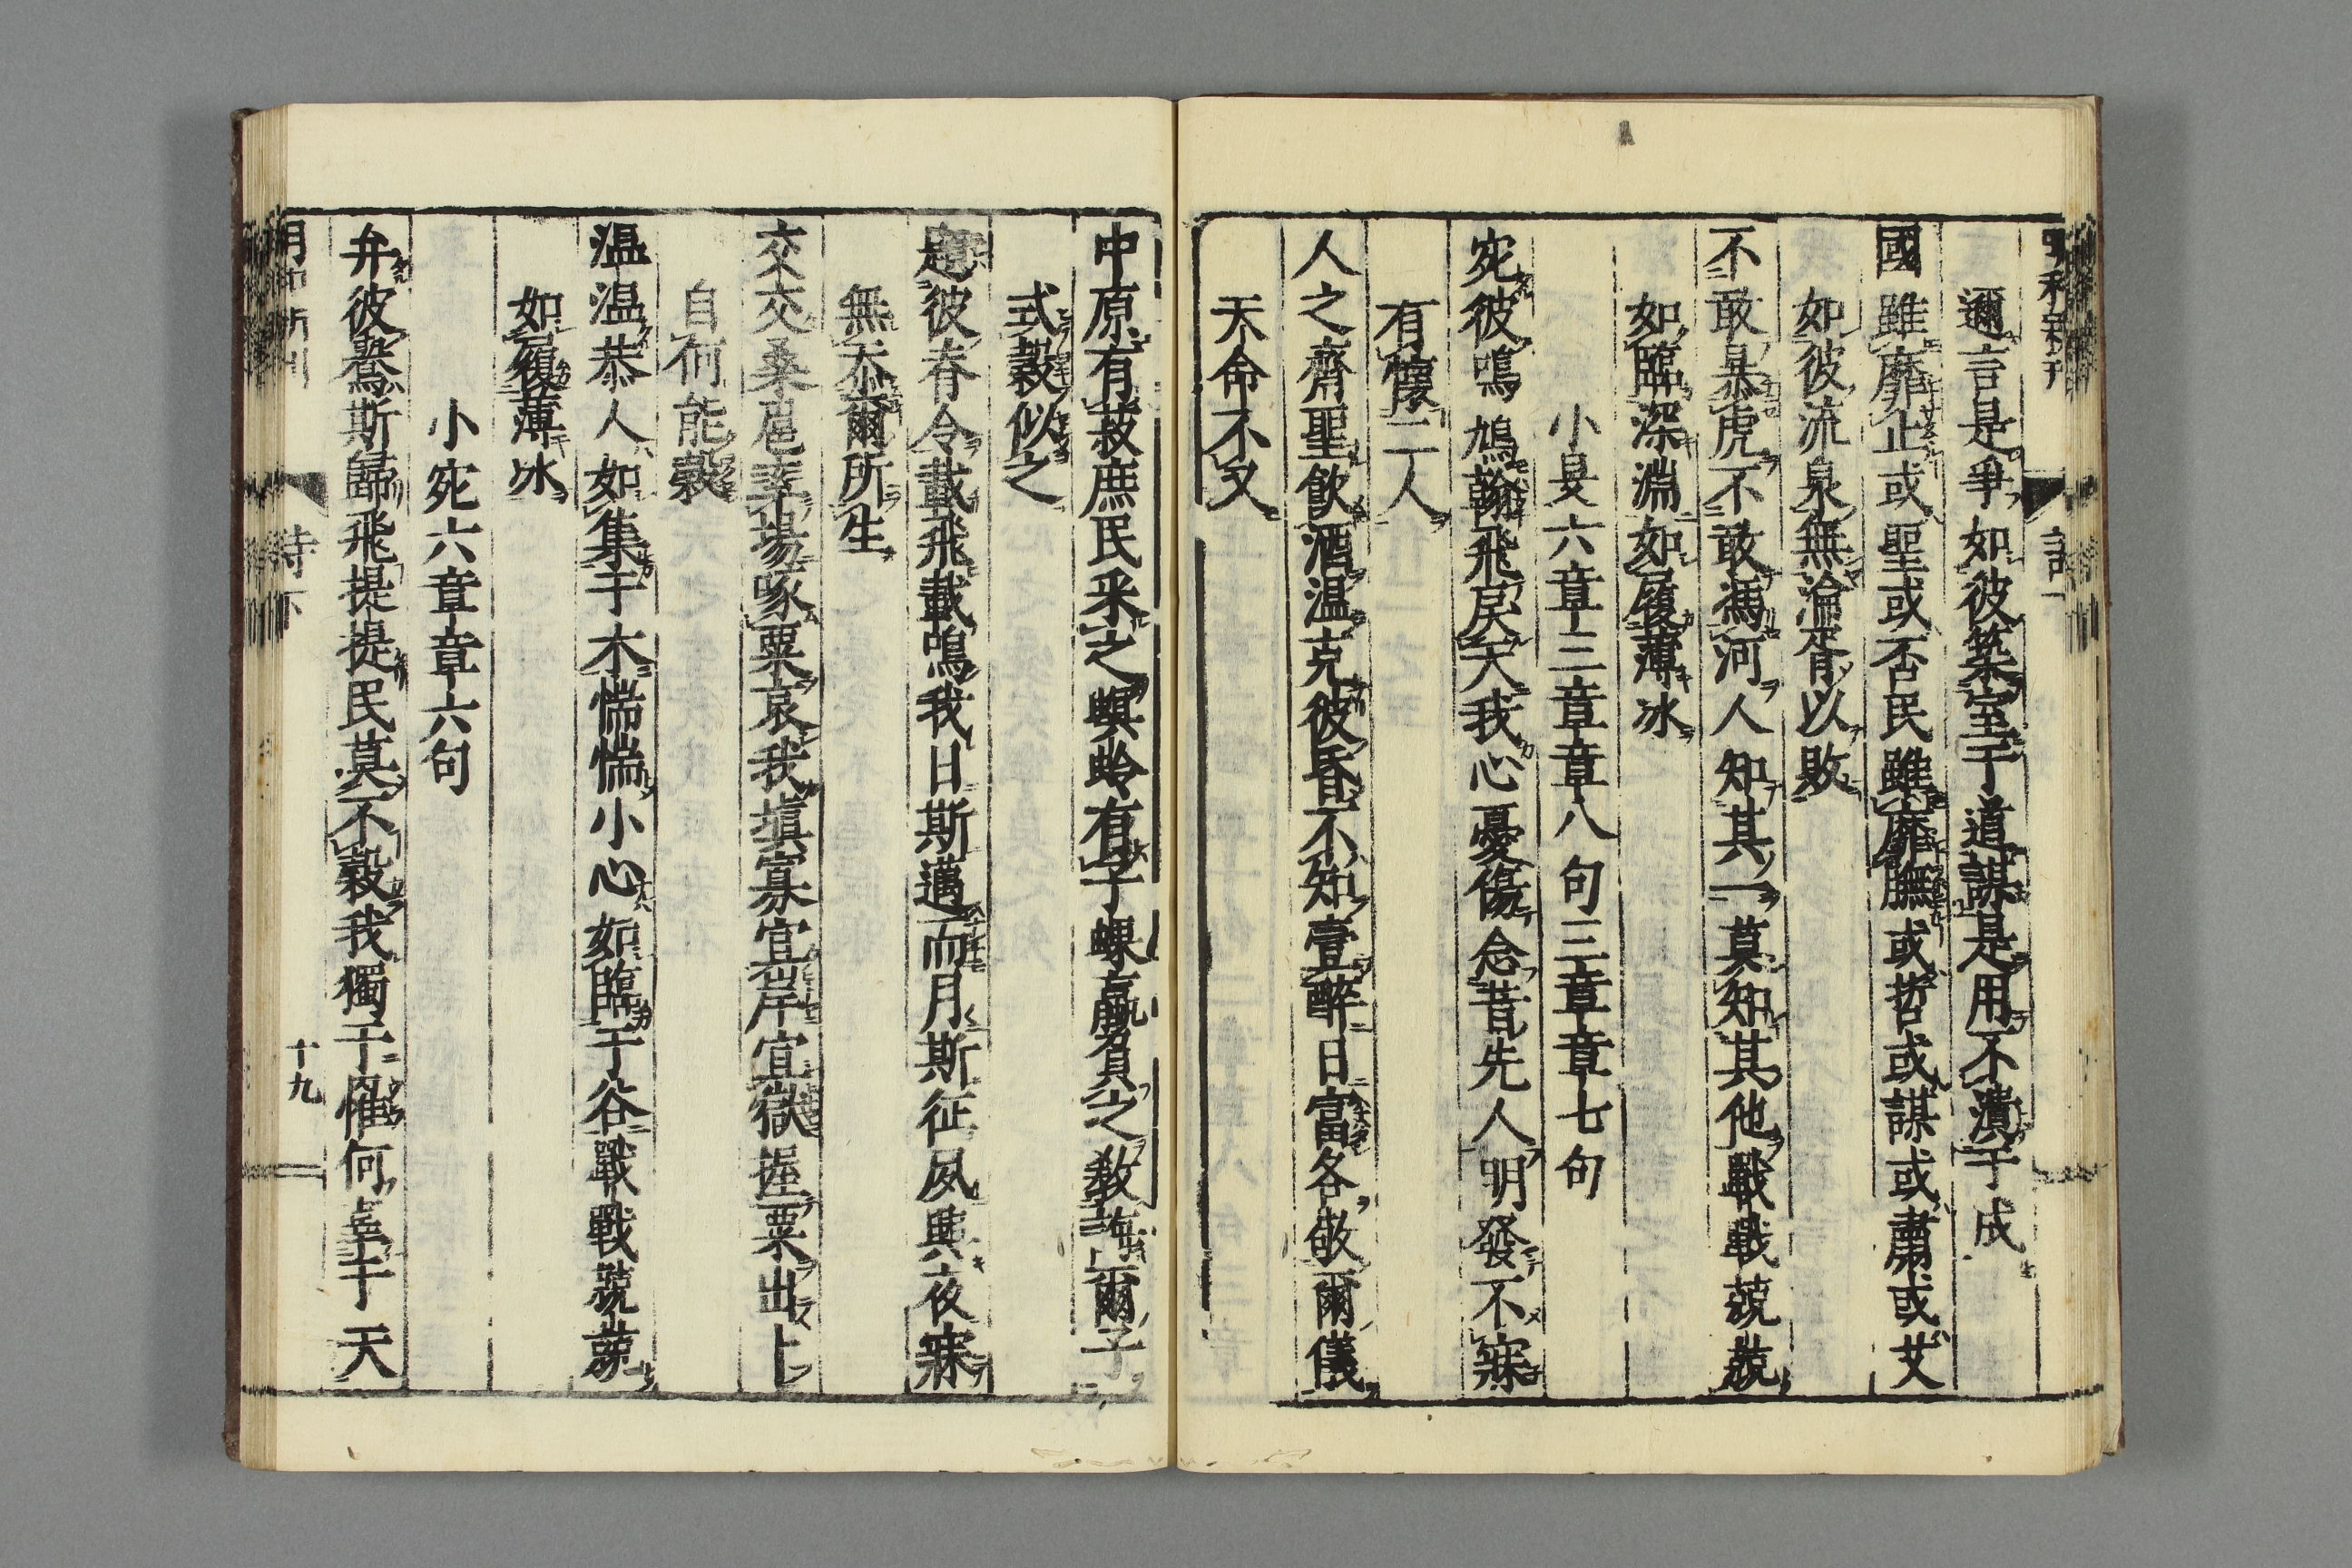 邇言是爭如彼築室于道謀是用不潰于成
國雖靡止或聖或否民雖靡膴或哲或謀或肅或艾
如彼流泉無淪胥以敗
不敢暴虎不敢馮河人知其一莫知其他戰戰兢兢
如臨深淵如履薄冰
小旻六章三章章八句三章章七句
宛彼鳴鳩翰飛戾天我心憂傷念昔先人明發不寐
有懷二人
人之齊聖飲酒温克彼昏不知壹醉日富各敬爾儀
天命不又
中原有菽庶民采之螟蛉有子蜾蠃負之敎誨爾子
式穀似之
題彼脊令載飛載鳴我日斯邁而月斯征夙興夜寐
無忝爾所生
交交桑扈率場啄粟哀我塡寡宜岸宜獄握粟出卜
自何能穀
温温恭人如集于木惴惴小心如臨于谷戰戰兢兢
如履薄冰
小宛六章章六句
弁彼鸒斯歸飛提提民莫不穀我獨于懼何辜于天
詩下
十九